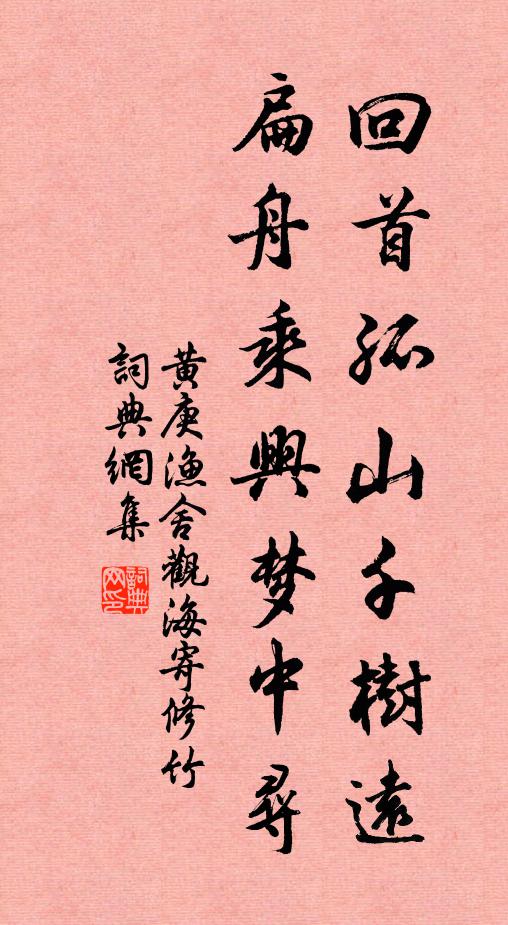 回首孤山千樹遠
扁舟乘興梦中尋
黄庚漁舍觀海寄修竹
詞典網集
詞典网印